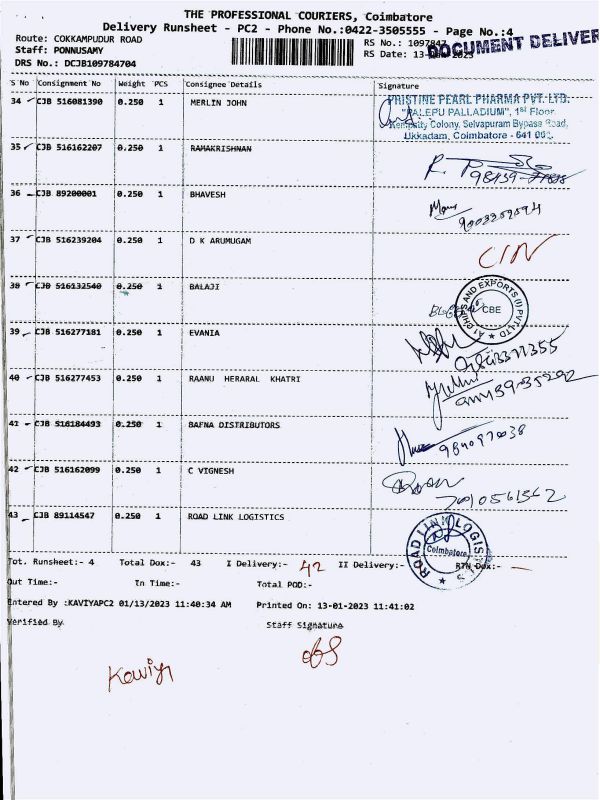 THE PROFESSIONAL COURIERS, Coimbatore
Delivery Runsheet - PC2 - Phone No.:0422-3505555 - Page No.:4
Route: COKKAMPUDUR ROAD
Staff: PONNUSAMY
DRS No.: DCJB109784704
RS No.: 1097847
RS Date: 13-
2023
DOCUMENT DELIVER
S No Consignment No Weight PCS Consignee Details Signature
34 CJB 516081390 0.250 1 MERLIN JOHN
PRISTINE PEARL PHARMA PVT. LTD.
"PALEPU PALLADIUM", 1st Floor
Kempatty Colony, Selvapuram Bypass Road,
Ukkadam, Coimbatore - 641 001.
35 CJB 516162207 0.250 1 RAMAKRISHNAN
36 CJB 89200001 0.250 1 BHAVESH
37 CJB 516239204 0.250 1 D K ARUMUGAM
38 CJB 516132540 0.250 1 BALAJI
EXPORTS (I) PVT LTD
CBE
39 CJB 516277181 0.250 1 EVANIA
40 CJB 516277453 0.250 1 RAANU HERARAL KHATRI
41 CJB 516184493 0.250 1 BAFNA DISTRIBUTORS
42 CJB 516162099 0.250 1 C VIGNESH
43 CJB 89114547 0.250 1 ROAD LINK LOGISTICS
ROAD LINK LOGISTICS
Coimbatore
Tot. Runsheet:- 4 Total Dox:- 43 I Delivery:- 42 II Delivery:- RTN Dox:- —
Out Time:- In Time:- Total POD:-
Entered By :KAVIYAPC2 01/13/2023 11:40:34 AM Printed On: 13-01-2023 11:41:02
Verified By Staff Signature
Kaviya